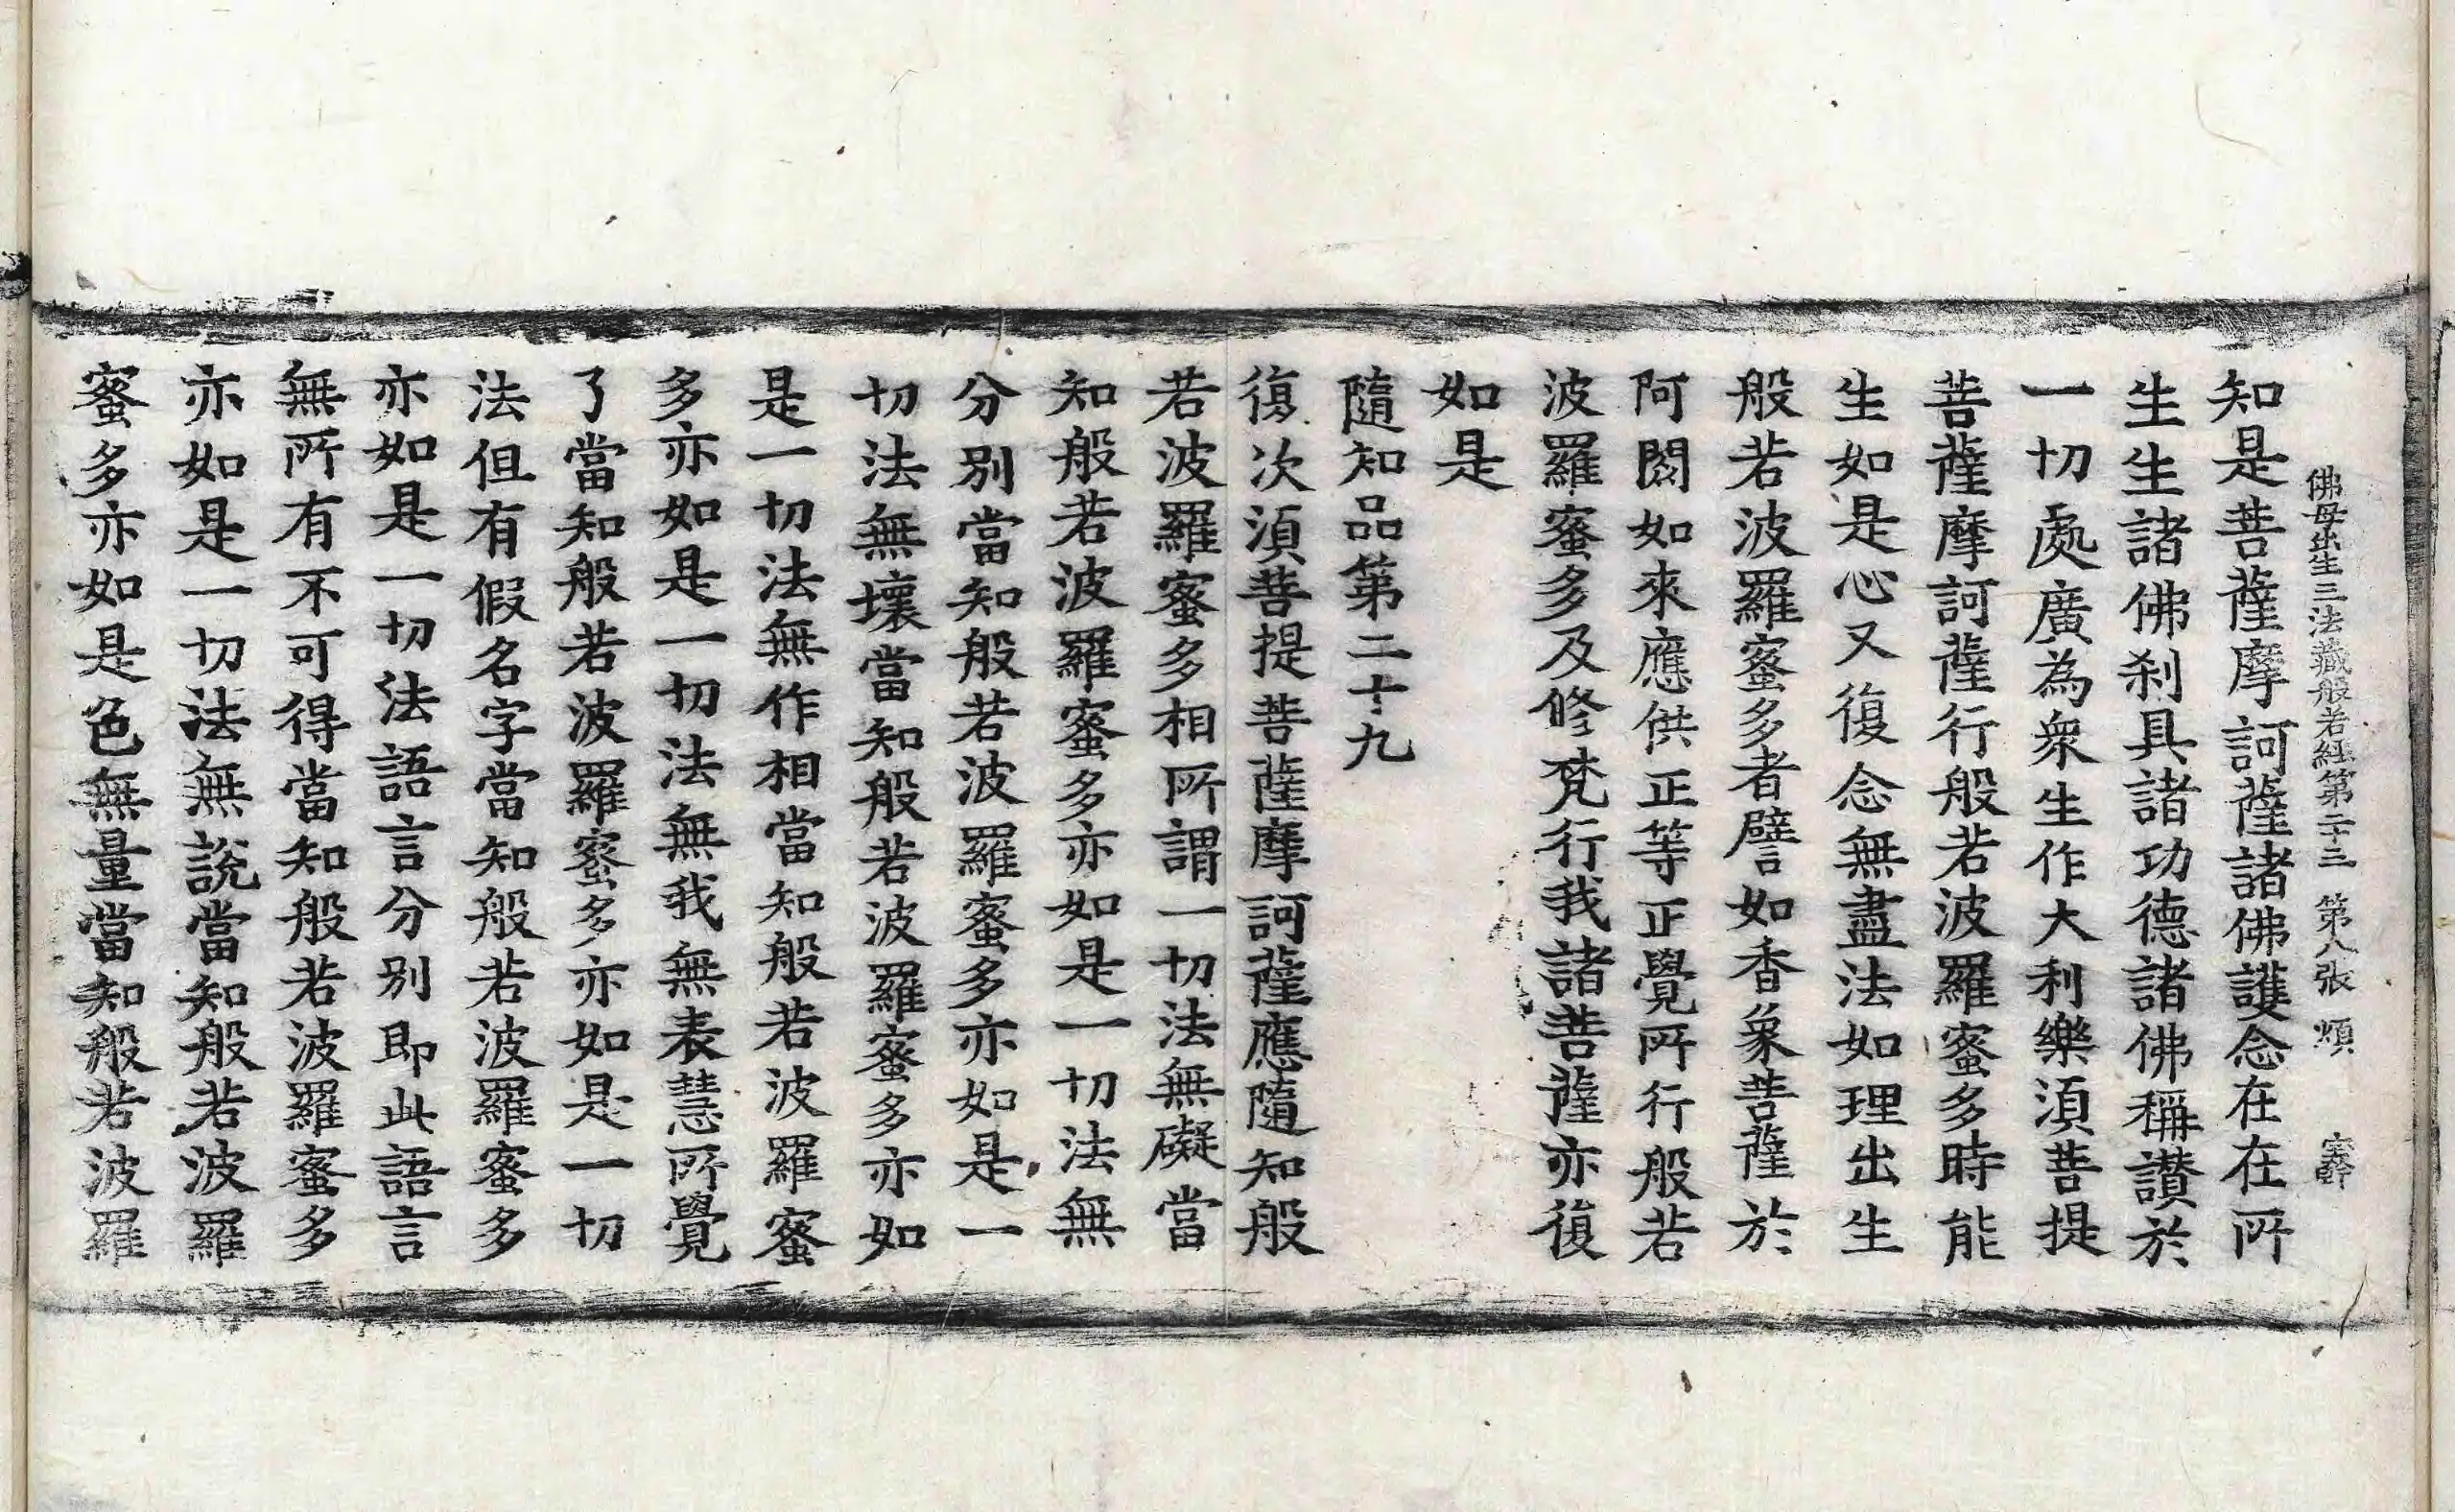 佛母出生三法藏般若經第二十三 第八張 煩
知是菩薩摩訶薩諸佛護念在在所
生生諸佛刹具諸功德諸佛稱讚於
一切處廣為衆生作大利樂湏菩提
菩薩摩訶薩行般若波羅蜜多時能
生如是心又復念無盡法如理出生
般若波羅蜜多者譬如香象菩薩於
阿閦如來應供正等正覺所行般若
波羅蜜多及修梵行我諸菩薩亦復
如是
隨知品第二十九
復次湏菩提菩薩摩訶薩應隨知般
若波羅蜜多相所謂一切法無礙當
知般若波羅蜜多亦如是一切法無
分別當知般若波羅蜜多亦如是一
切法無壞當知般若波羅蜜多亦如
是一切法無作相當知般若波羅蜜
多亦如是一切法無我無表慧所覺
了當知般若波羅蜜多亦如是一切
法但有假名字當知般若波羅蜜多
亦如是一切法語言分別即此語言
無所有不可得當知般若波羅蜜多
亦如是一切法無說當知般若波羅
蜜多亦如是色無量當知般若波羅